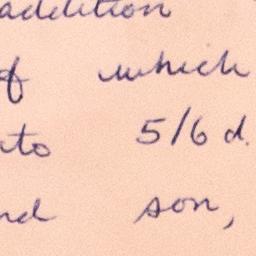 addition
of which
to 5/6 d.
nd son,